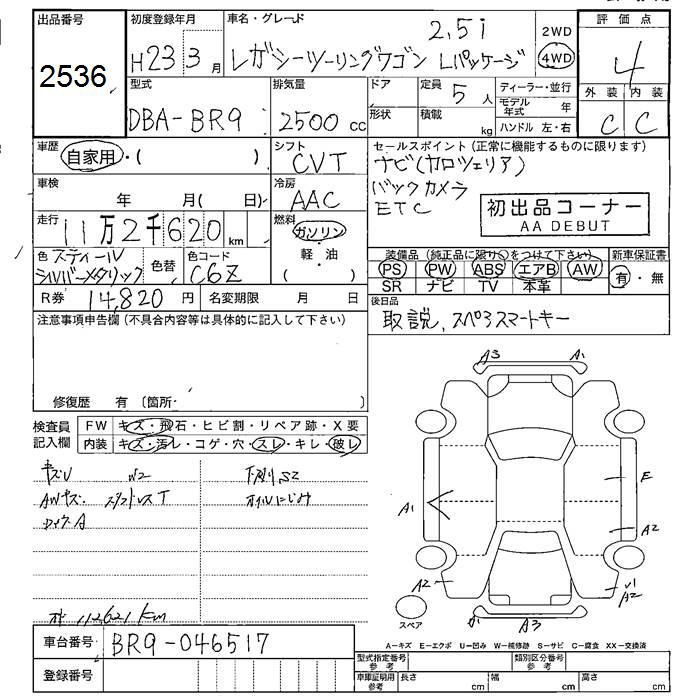 出品番号
2536
初度登録年月
H23 3 月
車名・グレード
2.5i
レガシーツーリングワゴン Lパッケージ
2WD
4WD
評価点
4
外装 内装
C C
型式
DBA-BR9
排気量
2500 cc
ドア
形状
定員
5 人
積載
kg
ディーラー・並行
モデル年式 年
ハンドル 左・右
車歴
自家用・( )
シフト
CVT
セールスポイント(正常に機能するものに限ります)
ナビ(カロツェリア)
バックカメラ
ETC
初出品コーナー
AA DEBUT
車検
年 月( 日)
冷房
AAC
走行
11万2千620 km
燃料
ガソリン
軽・油
( )
色 スティール
シルバーメタリック
色替
色コード
C6Z
装備品(純正品に限り○をつけて下さい)
PS PW ABS エアB AW
SR ナビ TV 本革
新車保証書
有・無
R券 14,820 円
名変期限 月 日
後日品
取説、スペアスマートキー
注意事項申告欄(不具合内容等は具体的に記入して下さい)
修復歴 有(箇所· )
検査員
記入欄
FW キズ・飛石・ヒビ割・リペア跡・X要
内装 キズ・汚レ・コゲ・穴・スレ・キレ・破レ
W2
下廻りS2
AWキズ
スタットレスT
オイルにじみ
112621 km
A3 A1
E
A1
A2
A2
A2
A3
スペア
A-キズ E-エクボ U-凹み W-補修跡 S-サビ C-腐食 XX-交換済
車台番号 BR9-046517
登録番号
型式指定番号
参考
類別区分番号
参考
車庫証明用
参考
長さ cm 幅 cm 高さ cm